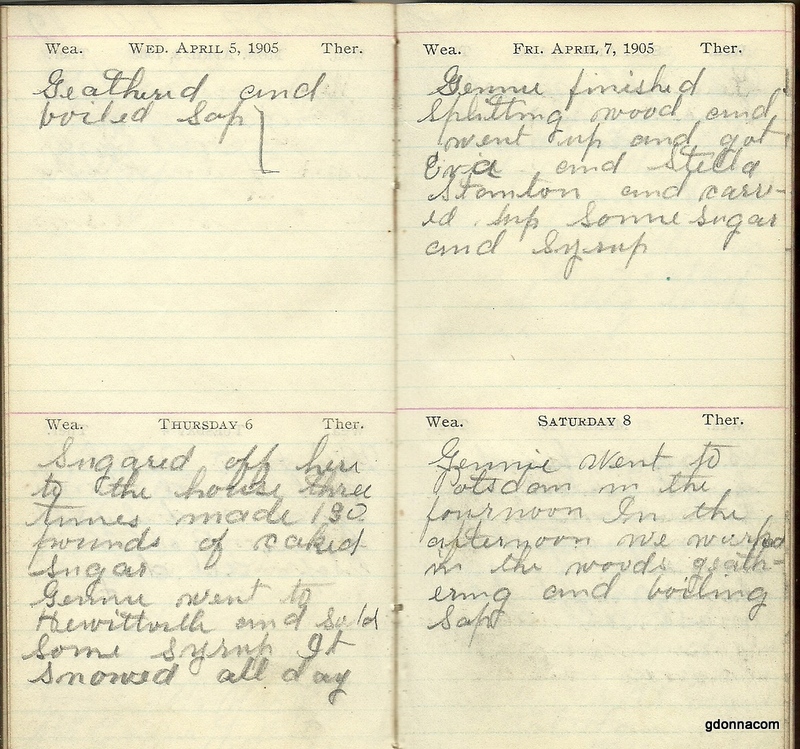 Wea. WED. APRIL 5, 1905 Ther.
Geathered and
boiled Sap
Wea. THURSDAY 6 Ther.
Sugared off here
to the house three
times made 130
pounds of caked
Sugar
Gennie went to
Hewittville and Sold
Some Syrup It
Snowed all day
Wea. FRI. APRIL 7, 1905 Ther.
Gennie finished
Splitting wood and
went up and got
Eva and Stella
Stanton and carri-
ed up Some Sugar
and Syrup
Wea. SATURDAY 8 Ther.
Gennie Went to
Potsdam in the
fournoon In the
afternoon we worked
in the woods geath-
ering and boiling
Sap
gdonnacom